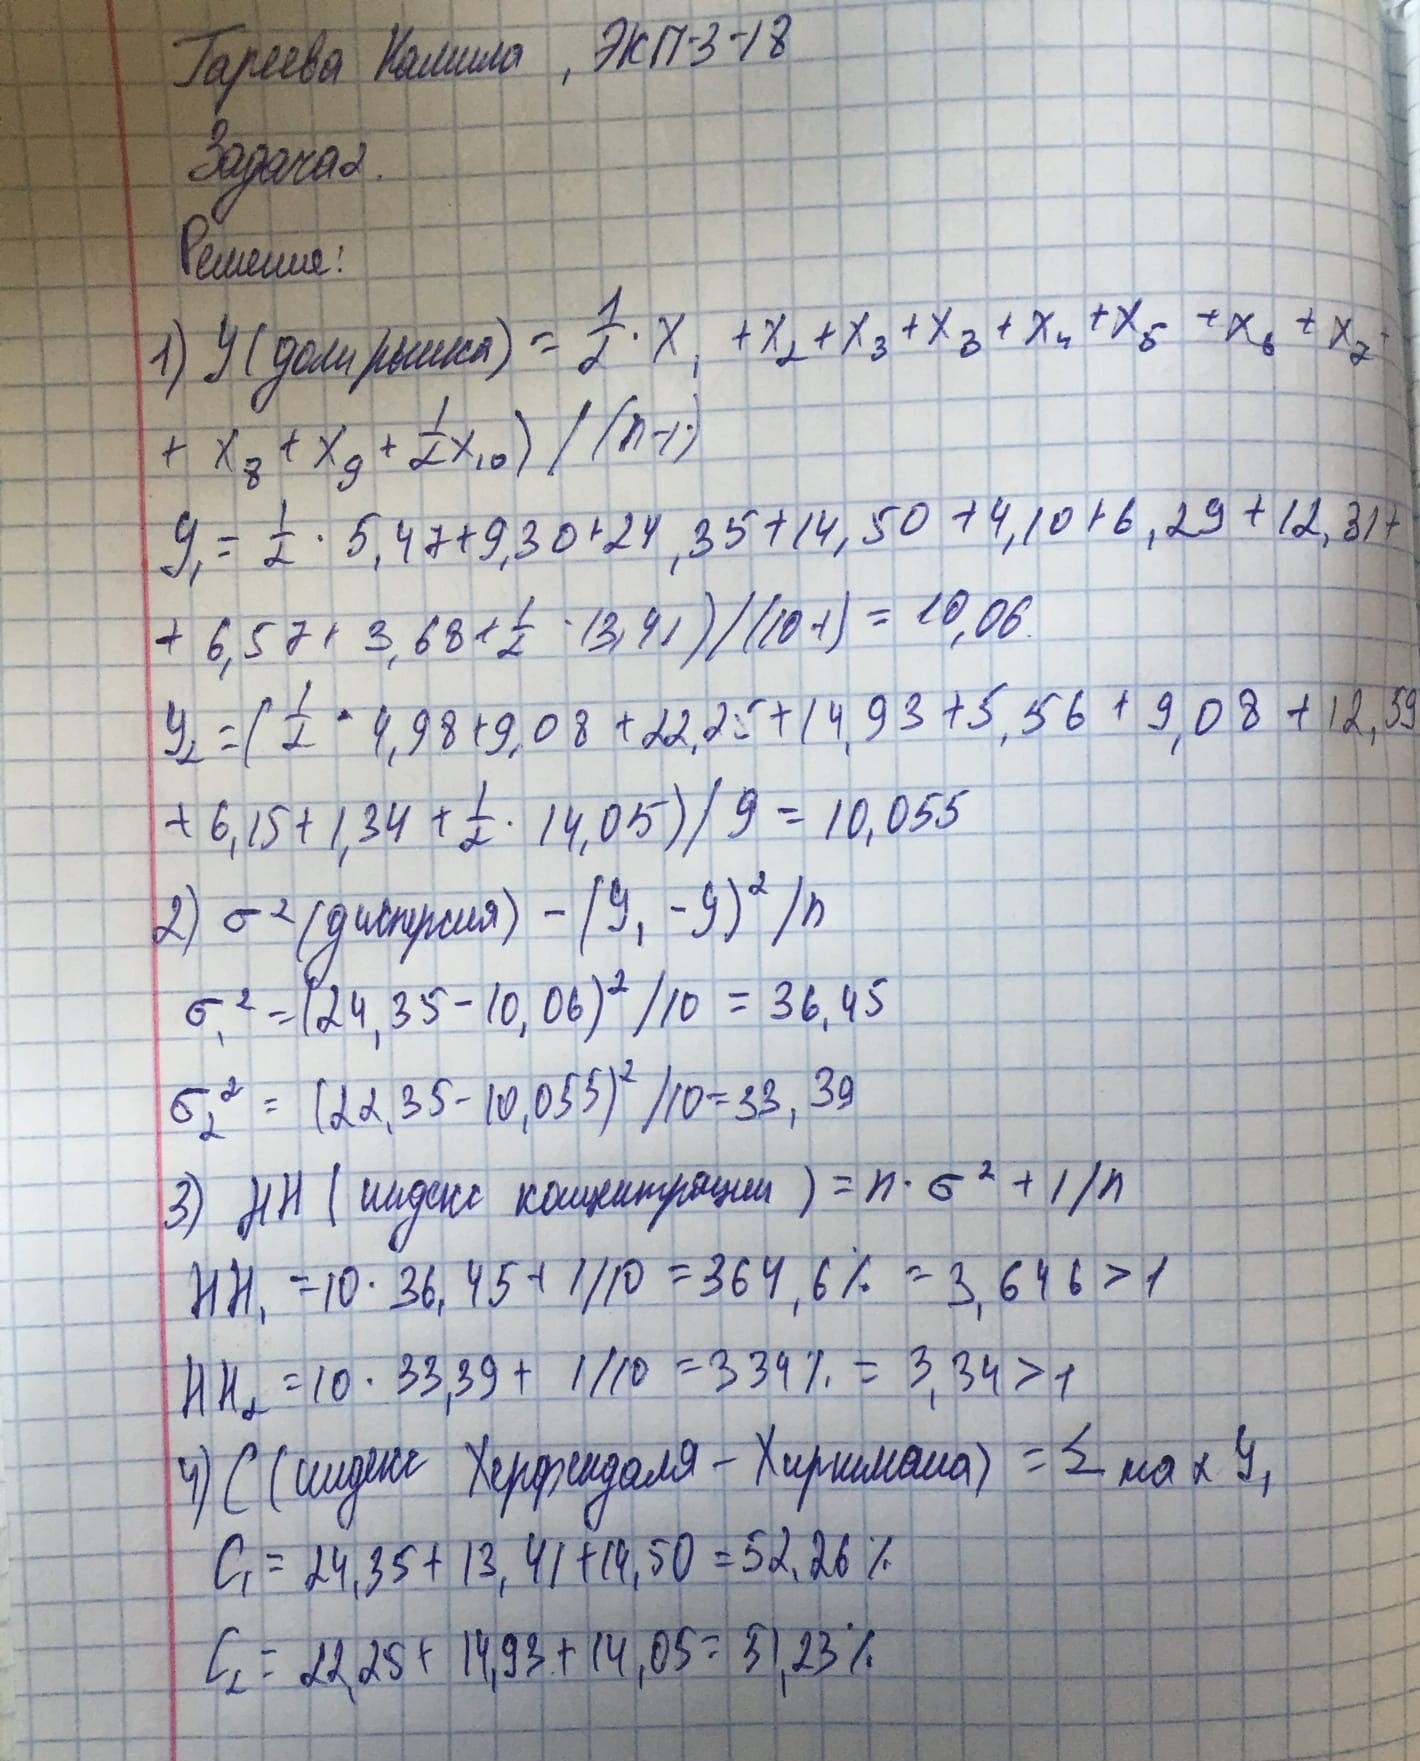 Гареева Камила, ЭКП-3-18
Задача 2.
Решение:
1) У (доли рынка) = 1/2 · x₁ + x₂ + x₃ + x₃ + x₄ + x₅ + x₆ + x₇ +
+ x₈ + x₉ + 1/2 x₁₀) / (n-1)
У₁ = 1/2 · 5,47+9,30+24,35+14,50+4,10+6,29+12,31+
+ 6,57+ 3,68+1/2 · 13,41) / (10-1) = 10,06.
У₂ = (1/2 · 4,98+9,08+22,25+14,93+5,56+9,08+12,59
+ 6,15+1,34+1/2 · 14,05) / 9 = 10,055
2) σ² (дисперсия) - (У₁ - У)² / n
σ₁² = (24,35-10,06)² / 10 = 36,45
σ₂² = (22,35-10,055)² / 10 = 33,39
3) HH (индекс концентрации) = n · σ² + 1/n
HH₁ = 10 · 36,45 + 1/10 = 364,6% = 3,646 > 1
HH₂ = 10 · 33,39 + 1/10 = 334% = 3,34 > 1
4) C (индекс Херфендаля - Хиршмана) = Σ max У₁
C₁ = 24,35 + 13,41 + 14,50 = 52,26%
C₂ = 22,25 + 14,93 + 14,05 = 51,23%